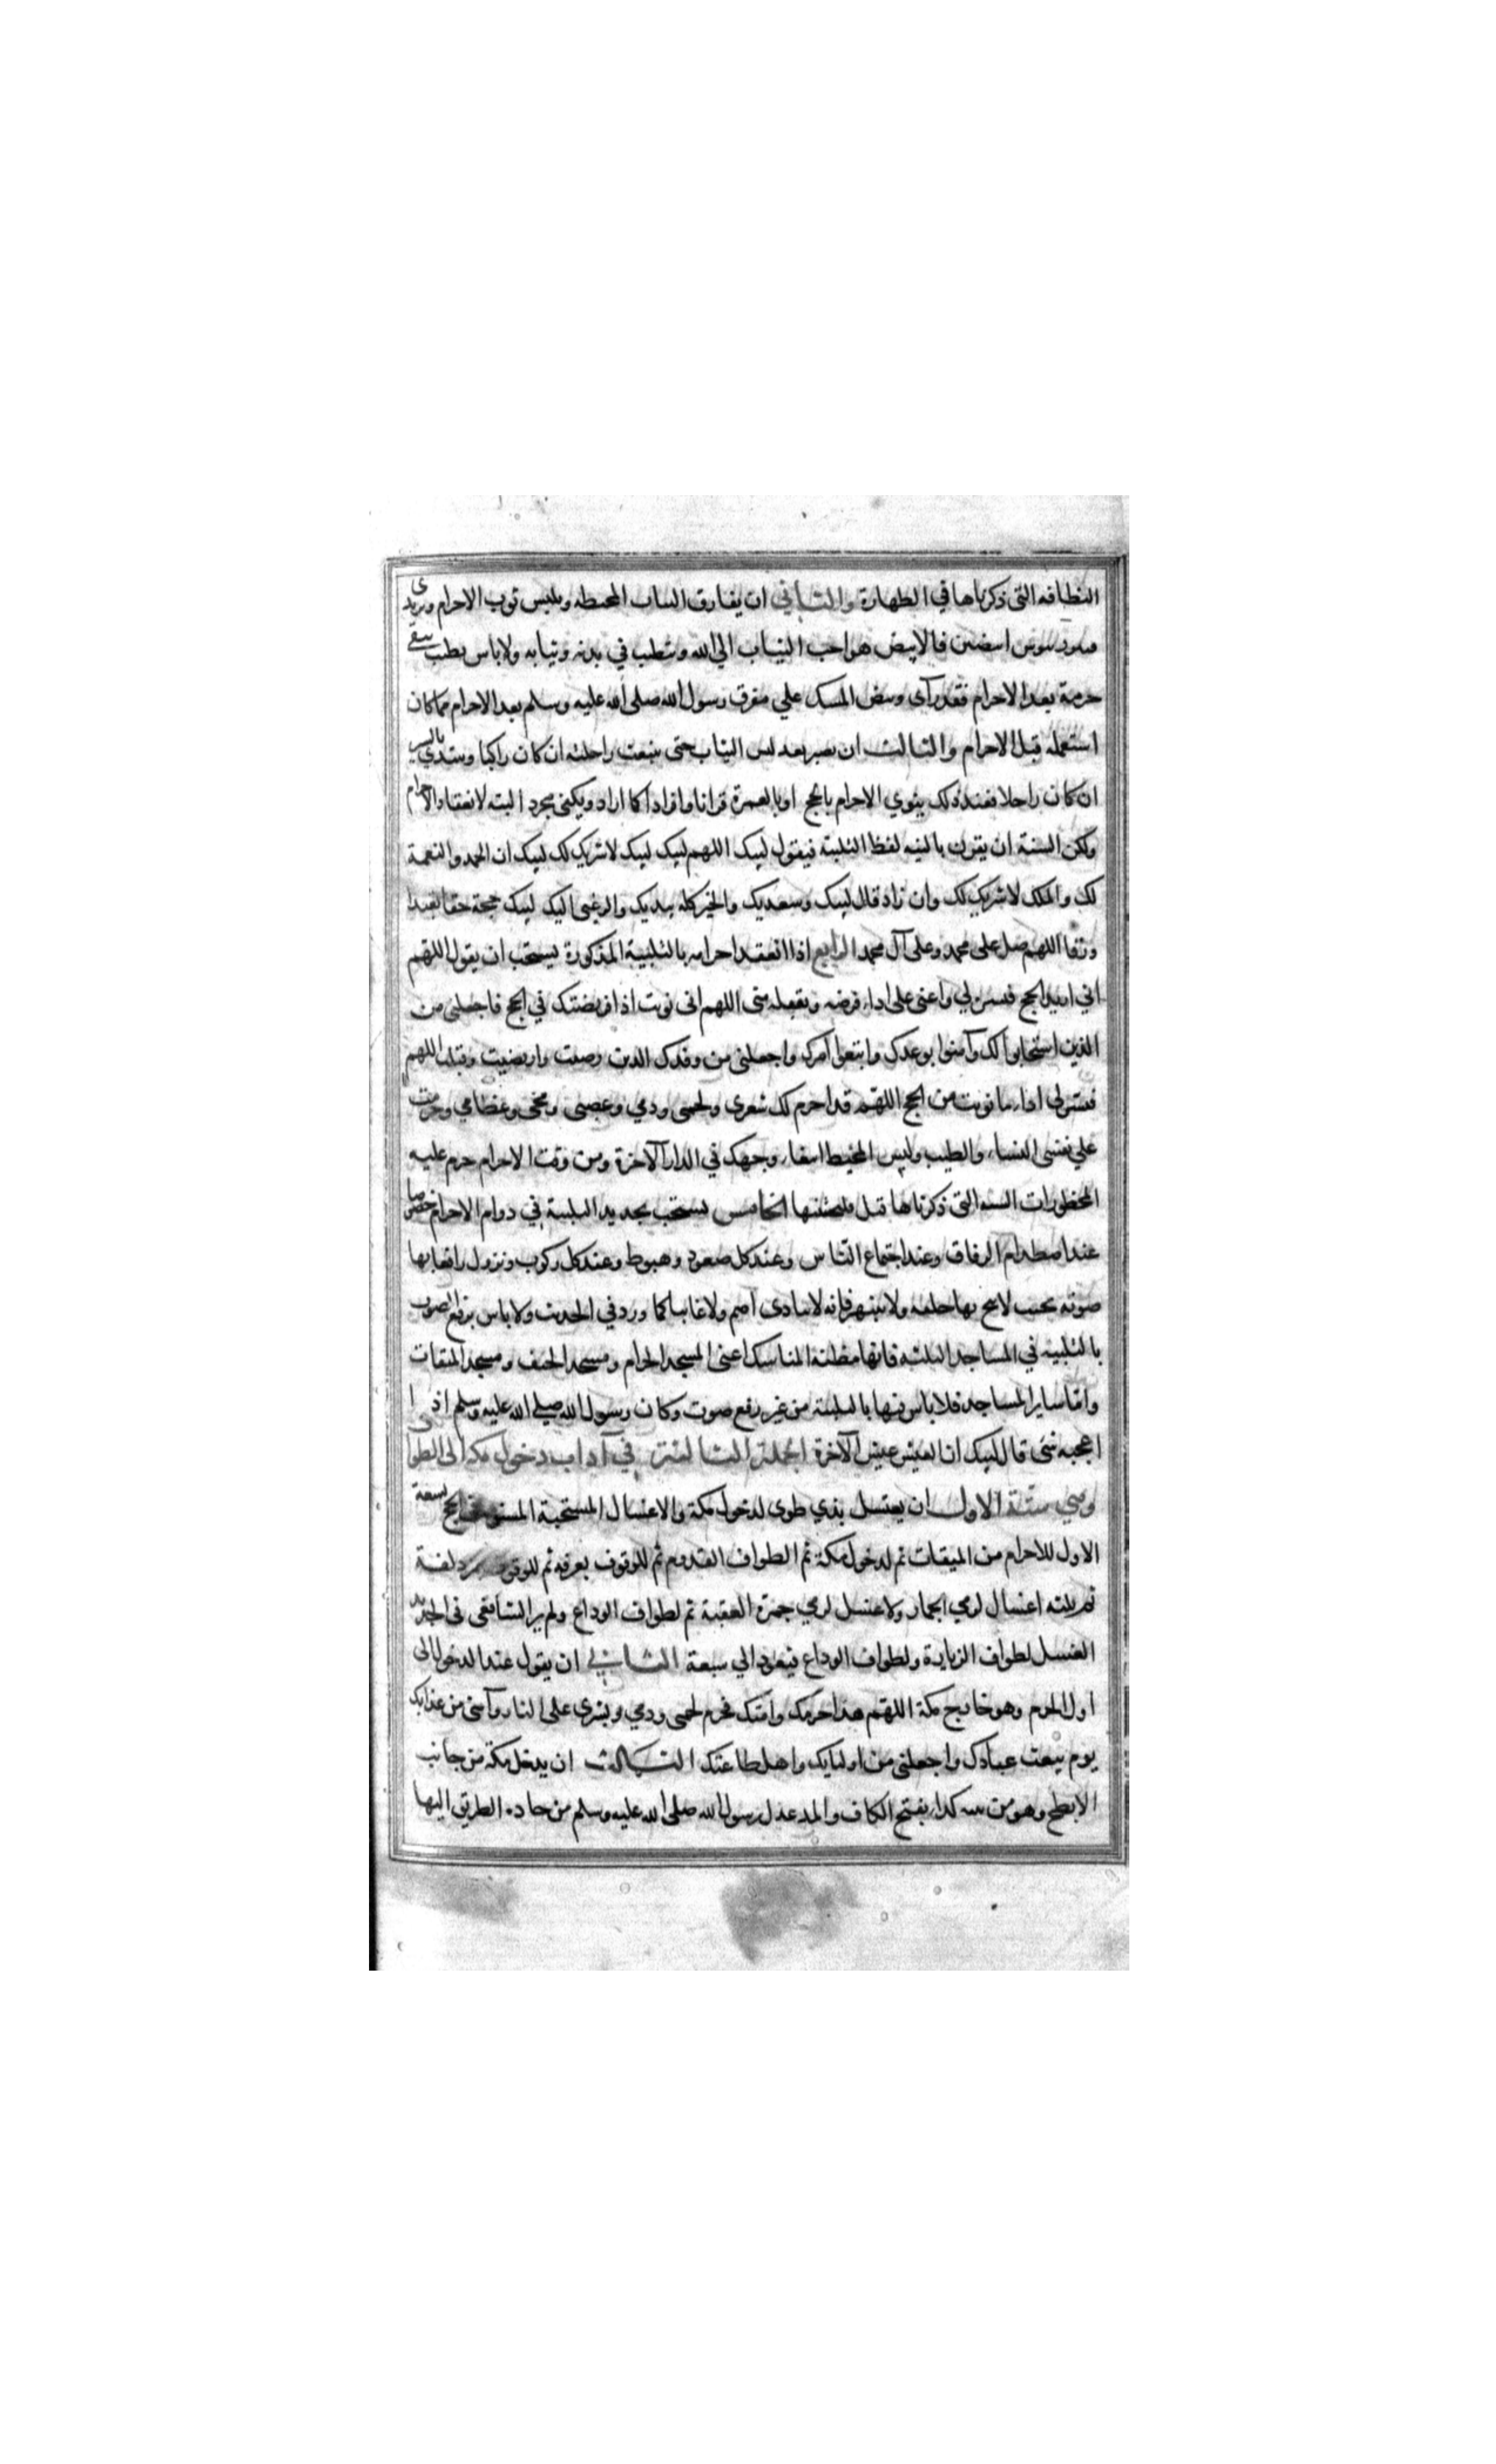 النظافه التى ذكرناها في الطهارة والثاني ان يفارق الساب المحيطه ويلبس ثوب الاحرام ويرتدى
ابيضين فالابيض هو احب الثياب الي الله وتتطيب في بدنه وثيابه ولاباس بطيب يبقى
جرمه بعد الاحرام فقد رآى وبيض المسك علي مفرق رسول الله صلى الله عليه وسلم بعد الاحرام مما كان
استعمله قبل الاحرام والثالث ان يصبر بعد لبس الثياب حتى تنبعث راحلته ان كان راكبا ويبتدي بالسير
ان كان راجلا فعند ذلك ينوي الاحرام بالحج او بالعمرة قرانا وافرادا كما اراد ويكفى مجرد النيه لانعقاد الاحرام
ولكن السنة ان يقرن بالنيه لفظ التلبية فيقول لبيك اللهم لبيك لبيك لاشريك لك لبيك ان الحمد والنعمة
لك والملك لاشريك لك وان زاد قال لبيك وسعديك والخير كله بيديك والرغبى اليك لبيك بحجة حقا تعبدا
ورقا اللهم صل على محمد وعلى آل محمد الرابع اذا انعقد احرامه بالتلبية المذكورة يستحب ان يقول اللهم
اني اريد الحج فيسره لي واعنى على اداء فرضه وتقبله منى اللهم انى نويت اذا فريضتك في الحج فاجعلنى من
الذين استجابوا لك وآمنوا بوعدك واتبعوا امرك واجعلنى من وفدك الذين رضيت وارتضيت وقبلت اللهم
فيسر لى اداء ما نويت من الحج اللهم قد احرم لك شعرى ولحمى ودمي وعصبى ومخى وعظامي وحرمت
علي نفسى النساء والطيب ولبس المخيط ابتغاء وجهك في الدار الآخرة ومن وقت الاحرام حرم عليه
المحظورات السته التى ذكرناها قبل فليجتنبها الخامس يستحب تجديد التلبية في دوام الاحرام خصوصا
عند اصطدام الرفاق وعند اجتماع الناس وعند كل صعود وهبوط وعند كل ركوب ونزول رافعا بها
صوته بحيث لا يبح بها حلقه ولا ينبهر فانه لا ينادى اصم ولا غائبا كما ورد في الحديث ولا باس برفع الصوت
بالتلبيه في المساجد الثلثه فانها مظنه المناسك اعنى المسجد الحرام ومسجد الخيف ومسجد الميقات
واما ساير المساجد فلاباس فيها بالتلبية من غير رفع صوت وكان رسول الله صلي الله عليه وسلم اذا
اعجبه شئ قال لبيك ان العيش عيش الآخرة الجملة الثالثة في آداب دخول مكه الى الطوا
وهي ستة الاول ان يغتسل بذي طوى لدخول مكة والاغتسال المستحبة المسنونة في الحج تسعة
الاول للاحرام من الميقات ثم لدخول مكة ثم الطواف القدوم ثم للوقوف بعرفه ثم للوقوف بمزدلفة
ثم ثلثه اغسال لرمي الجمار ولا غسل لرمي جمرة العقبة ثم لطواف الوداع ولم ير الشافعى فى الجديد
الغسل لطواف الزيارة ولطواف الوداع فيعود الي سبعة الثاني ان يقول عند الدخول الى
اول الحرم وهو خارج مكة اللهم هذا حرمك وامنك فحرم لحمى ودمي وبشرى على النار وآمنى من عذابك
يوم تبعث عبادك واجعلنى من اوليايك واهل طاعتك الثالث ان يدخل مكة من جانب
الابطح وهو من كداء بفتح الكاف والمد عدل رسول الله صلى الله عليه وسلم من جاده الطريق اليها